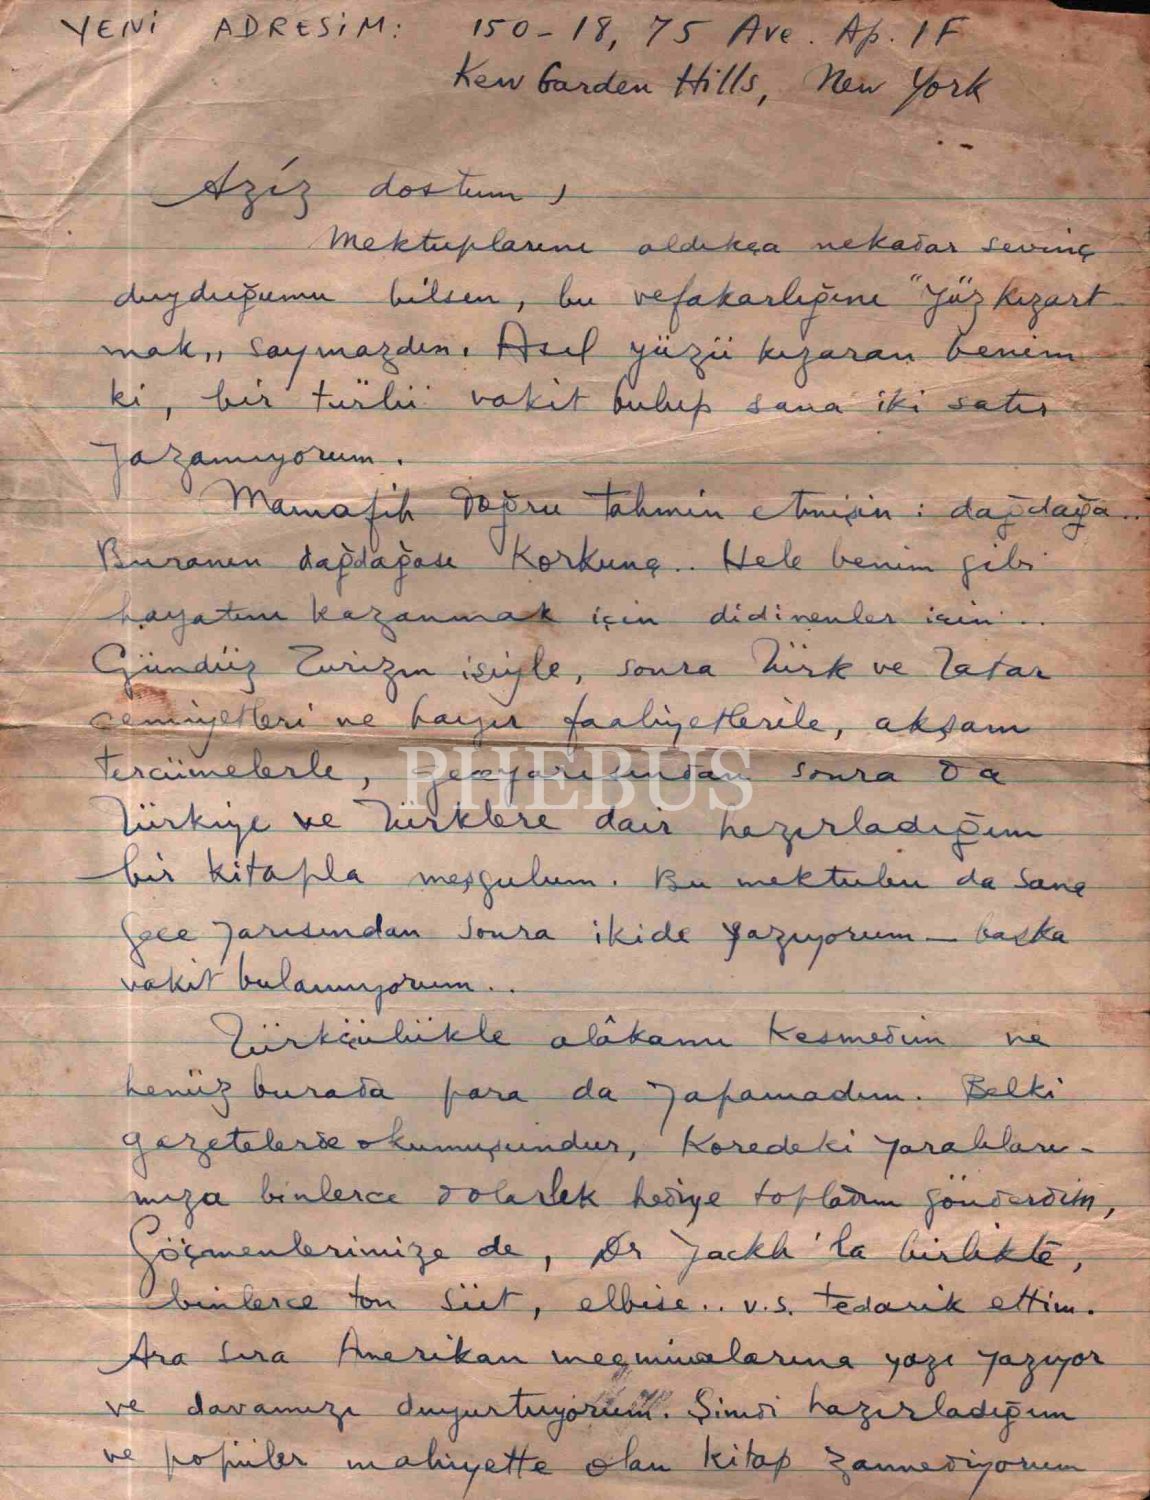 YENİ ADRESİM: 150-18, 75 Ave. Ap. 1F
Kew Garden Hills, New York
Aziz dostum,
Mektuplarını aldıkça nekadar sevinç
duyduğumu bilsen, bu vefakarlığını "yüz kızart
mak„ saymazdın. Asıl yüzü kızaran benim
ki, bir türlü vakit bulup sana iki satır
yazamıyorum.
Mamafih doğru tahmin etmişin: dağdağa..
Buranın dağdağası korkunç.. Hele benim gibi
hayatını kazanmak için didinenler için..
Gündüz Turizm işiyle, sonra Türk ve Tatar
cemiyetleri ve hayır faaliyetlerile, akşam
tercümelerle, geceyarısından sonra da
Türkiye ve Türklere dair hazırladığım
bir kitapla meşgulum. Bu mektubu da sana
gece yarısından sonra ikide yazıyorum — başka
vakit bulamıyorum..
Türkçülükle alâkamı kesmedim ve
henüz burada para da yapamadım. Belki
gazetelerde okumuşsundur, Koredeki yaralıları-
mıza binlerce dolarlık hediye topladım gönderdim,
Göçmenlerimize de, Dr Jackh'la birlikte,
binlerce ton süt, elbise.. v.s. tedarik ettim.
Ara sıra Amerikan mecmualarına yazı yazıyor
ve davamızı duyurtuyorum. Şimdi hazırladığım
ve popüler mahiyette olan kitap zannediyorum
PHEBUS